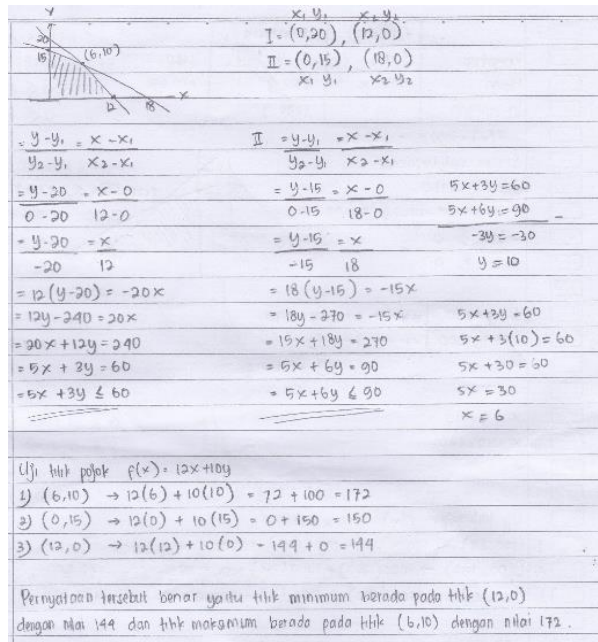 Y
20
15
(6,10)
12
18
x
x₁ y₁ x₂ y₂
I = (0,20), (12,0)
II = (0,15), (18,0)
x₁ y₁ x₂ y₂
= y-y₁ = x-x₁
y₂-y₁ x₂-x₁
= y-20 = x-0
0-20 12-0
= y-20 = x
-20 12
= 12(y-20) = -20x
= 12y-240 = 20x
= 20x+12y = 240
= 5x + 3y = 60
= 5x + 3y ≤ 60
II = y-y₁ = x-x₁
y₂-y₁ x₂-x₁
= y-15 = x-0
0-15 18-0
= y-15 = x
-15 18
= 18(y-15) = -15x
= 18y-270 = -15x
= 15x+18y = 270
= 5x + 6y = 90
= 5x+6y ≤ 90
5x+3y=60
5x+6y=90 -
-3y = -30
y = 10
5x+3y=60
5x+3(10)=60
5x+30=60
5x = 30
x = 6
Uji titik pojok f(x) = 12x+10y
1) (6,10) → 12(6) + 10(10) = 72 + 100 = 172
2) (0,15) → 12(0) + 10(15) = 0 + 150 = 150
3) (12,0) → 12(12) + 10(0) = 144 + 0 = 144
Pernyataan tersebut benar yaitu titik minimum berada pada titik (12,0)
dengan nilai 144 dan titik maksimum berada pada titik (6,10) dengan nilai 172.